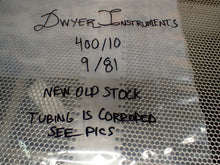 DWYER INSTRUMENTS
400/10
9/81
NEW OLD STOCK
TUBING IS CORRODED
SEE PICS